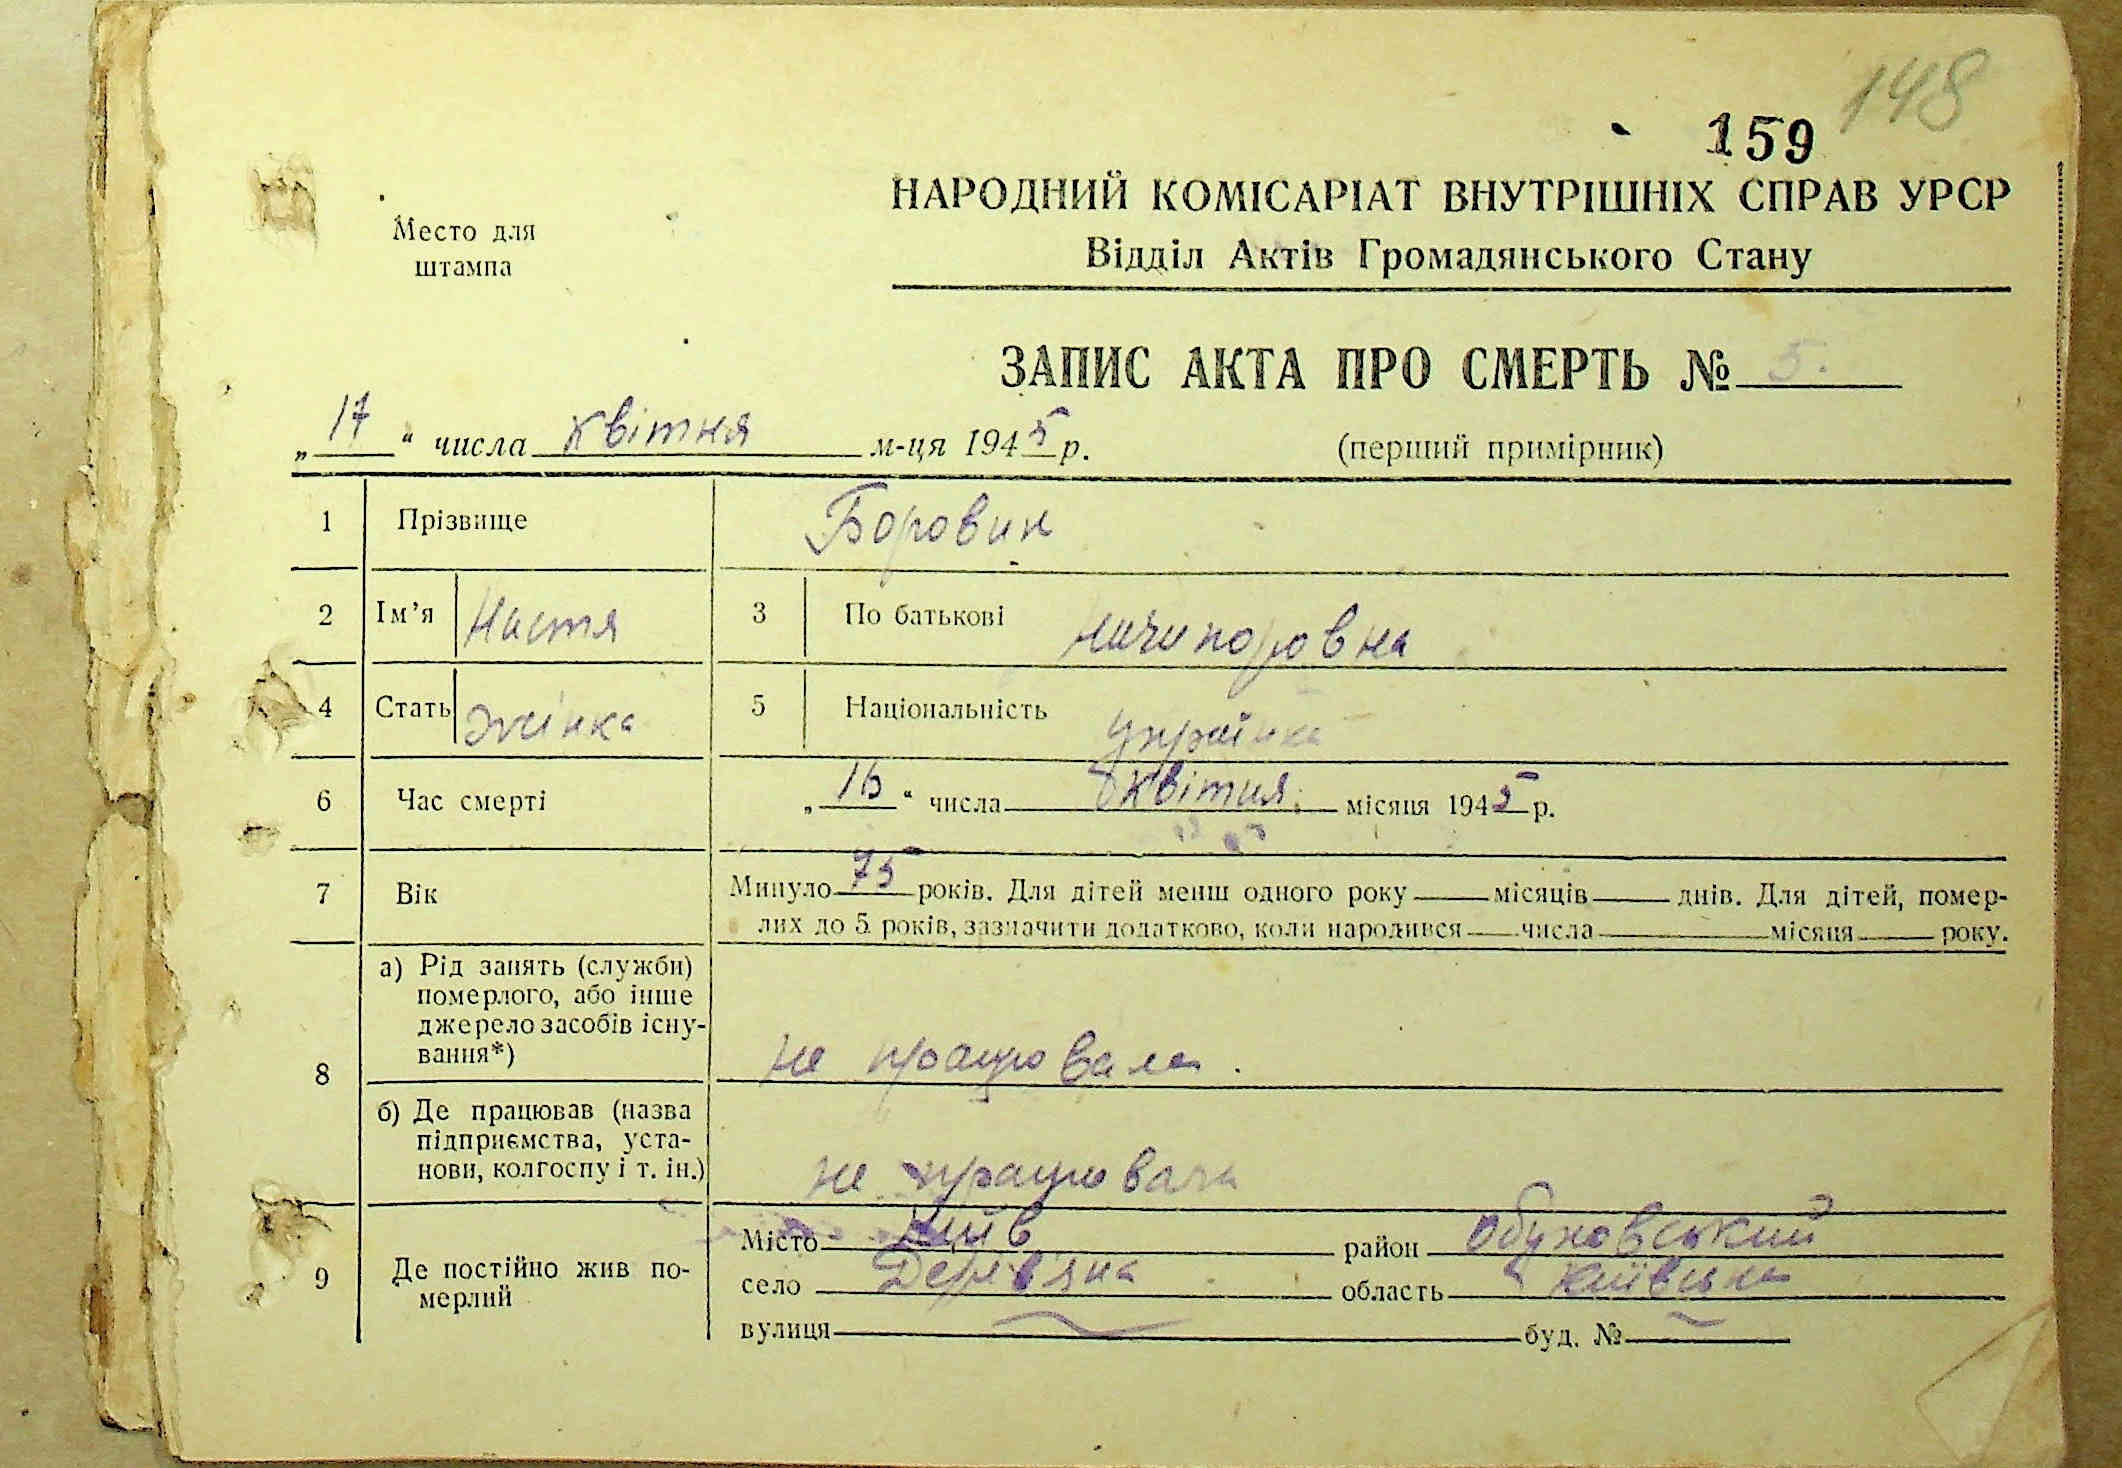 148
159
НАРОДНИЙ КОМІСАРІАТ ВНУТРІШНІХ СПРАВ УРСР
Место для
штампа
Відділ Актів Громадянського Стану
ЗАПИС АКТА ПРО СМЕРТЬ № 5.
„17“ числа квітня м-ця 1945 р.
(перший примірник)
1 Прізвище Боровик
2 Ім’я Настя 3 По батькові Ничипоровна
4 Стать жінка 5 Національність Українка
6 Час смерті „16“ числа квітня місяця 1945 р.
7 Вік Минуло 75 років. Для дітей менш одного року місяців днів. Для дітей, помер-
лих до 5 років, зазначити додатково, коли народився числа місяця року.
8 а) Рід занять (служби)
померлого, або інше
джерело засобів існу-
вання*)
не працювала.
б) Де працював (назва
підприємства, уста-
нови, колгоспу і т. ін.)
не працювала
9 Де постійно жив по-
мерлий
Місто Київ район Обуховський
село Дерев'яна область Київська
вулиця буд. №